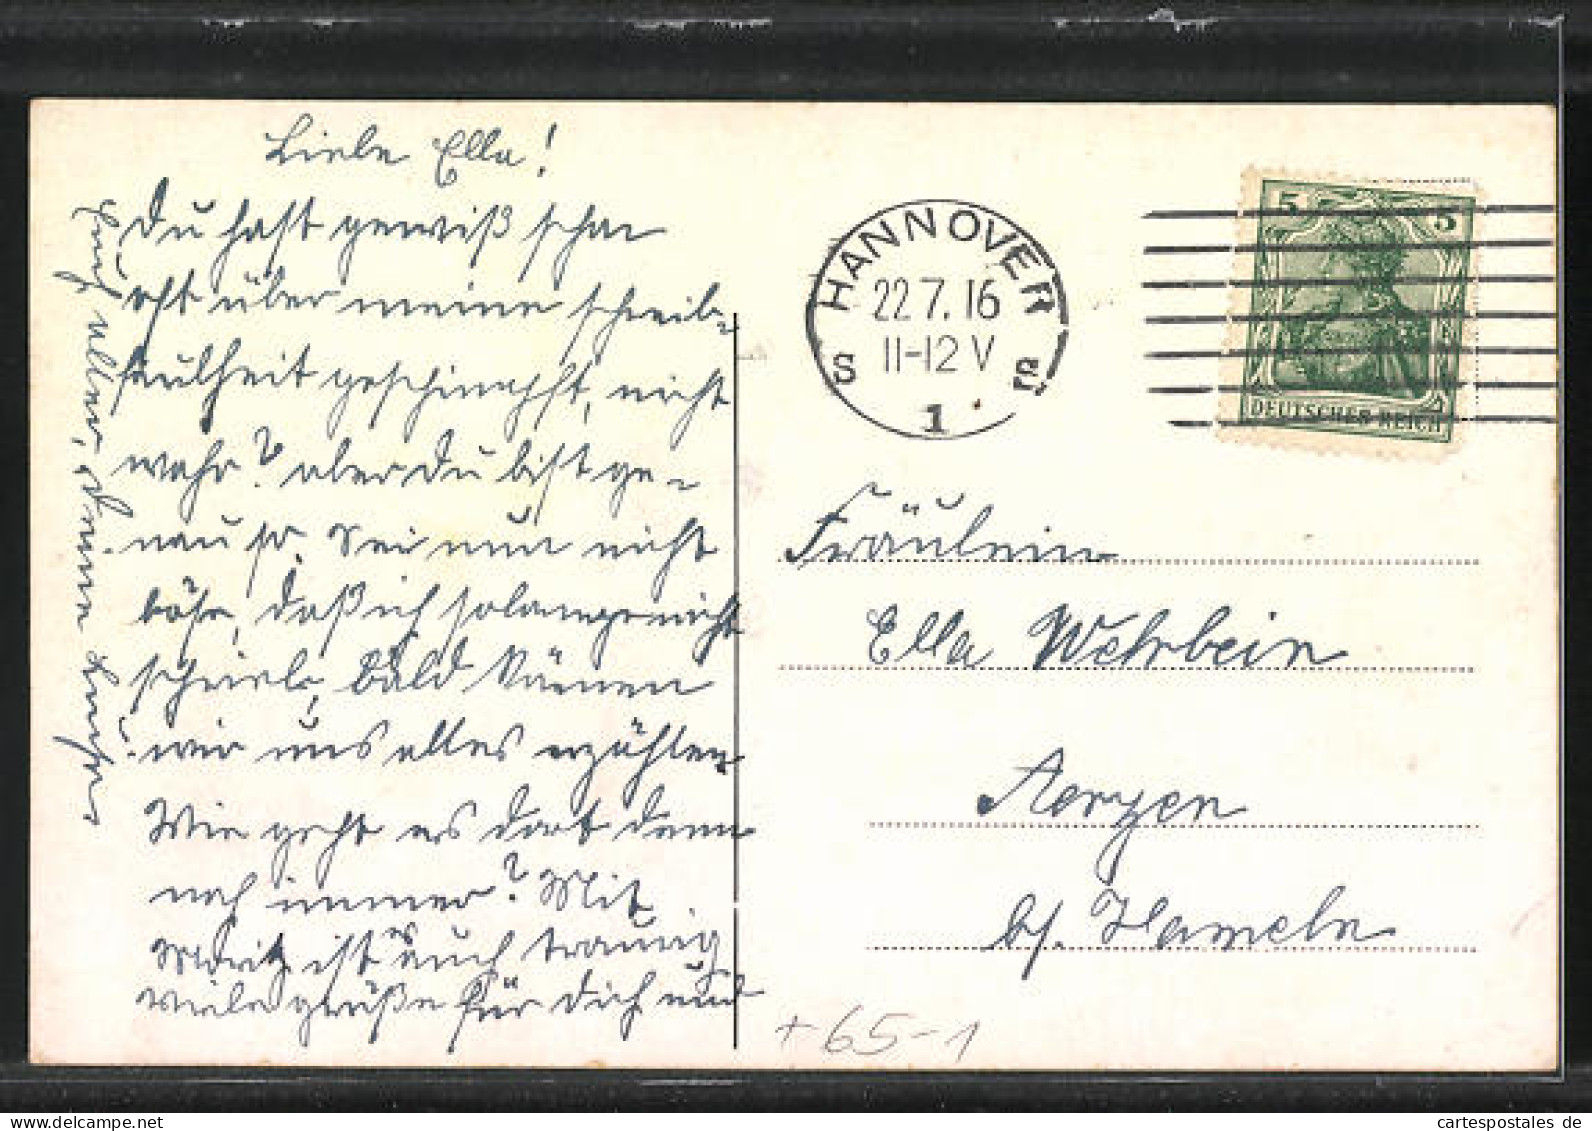 Liebe Ella!
Du hast gewiß schon
oft über meine schreib-
faulheit geschimpft, nicht
wahr? aber Du bist ge-
nau so. Sei nun nicht
böse, daß ich solange nicht
schrieb, bald können
wir uns alles erzählen
Wie geht es dort denn
noch immer? Mit
Moritz ist es auch traurig
viele grüße für Dich und
Euch allen, Deine
HANNOVER
22.7.16
11-12 V
S 1
5 5
DEUTSCHES REICH
Fräulein
Ella Wehrbein
Aerzen
b/. Hameln
+65-1
cartespostales de